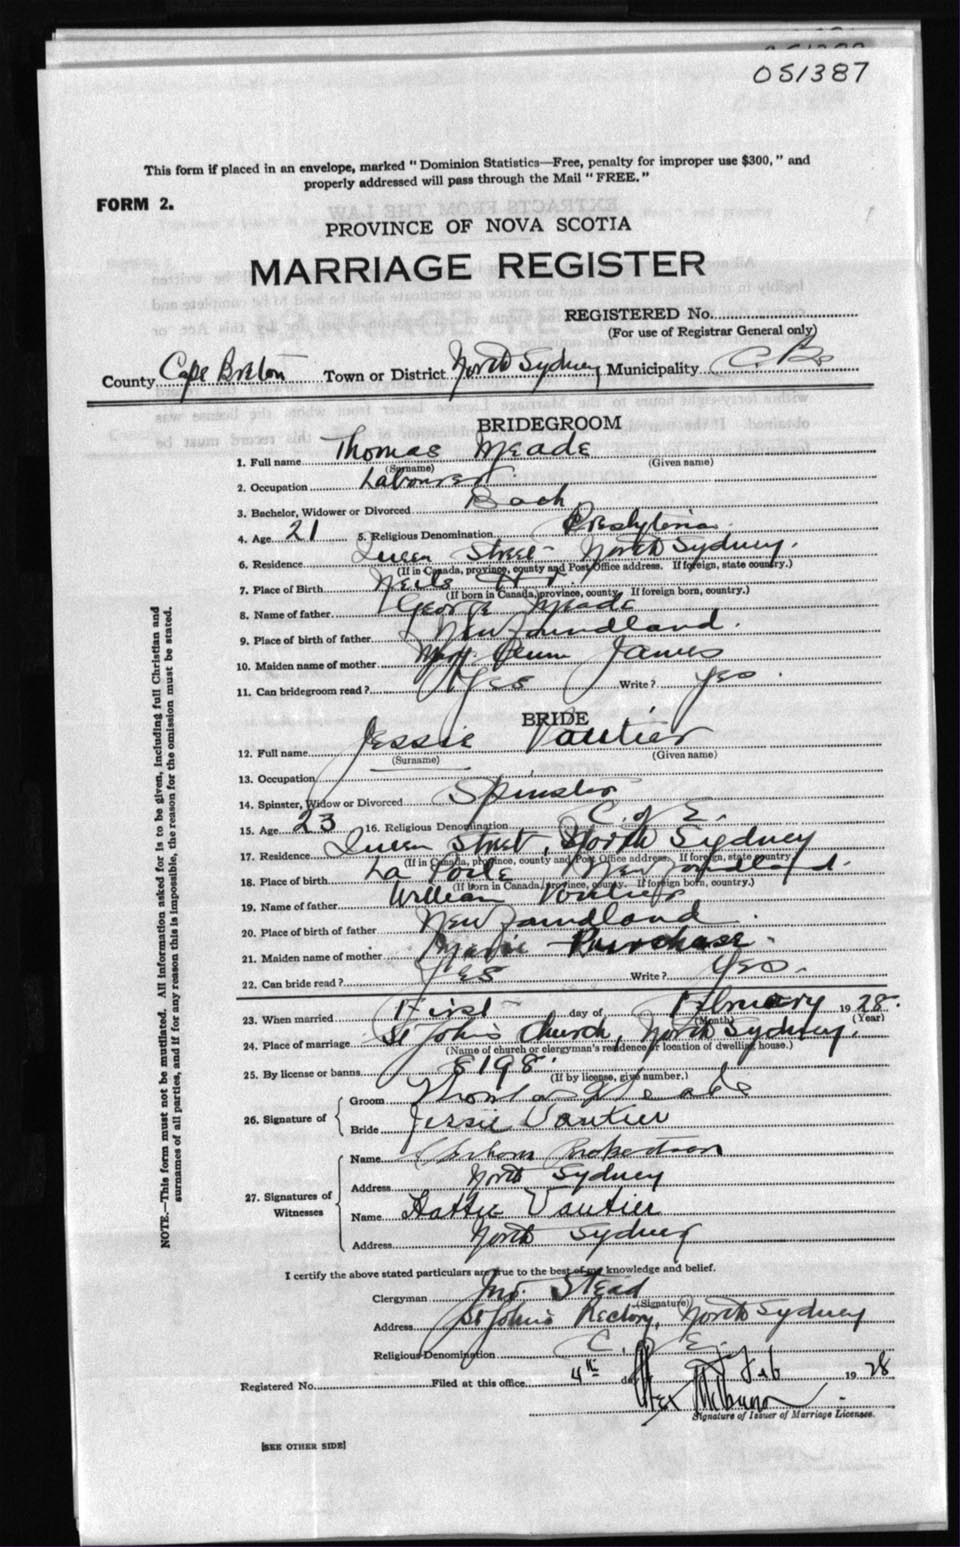 051387
This form if placed in an envelope, marked " Dominion Statistics—Free, penalty for improper use $300, " and
properly addressed will pass through the Mail " FREE. "
FORM 2.
PROVINCE OF NOVA SCOTIA
MARRIAGE REGISTER
REGISTERED No.
(For use of Registrar General only)
County Cape Breton Town or District North Sydney Municipality C. B.
BRIDEGROOM
1. Full name Thomas Meade
(Surname) (Given name)
2. Occupation Labourer
3. Bachelor, Widower or Divorced Bach
4. Age 21 5. Religious Denomination Presbyterian
6. Residence Queen Street - North Sydney.
(If in Canada, province, county and Post Office address. If foreign, state country.)
7. Place of Birth Neils Hr
(If born in Canada, province, county. If foreign born, country.)
8. Name of father George Meade
9. Place of birth of father Newfoundland.
10. Maiden name of mother Mary James
11. Can bridegroom read? Yes Write? Yes.
BRIDE
12. Full name Jessie Vautier
(Surname) (Given name)
13. Occupation
14. Spinster, Widow or Divorced Spinster
15. Age 23 16. Religious Denomination C. of E.
17. Residence Queen Street, North Sydney
(If in Canada, province, county and Post Office address. If foreign, state country.)
18. Place of birth La Poile Newfoundland.
(If born in Canada, province, county. If foreign born, country.)
19. Name of father William Vautier
20. Place of birth of father Newfoundland.
21. Maiden name of mother Purchase.
22. Can bride read? Yes Write? Yes.
23. When married First day of February 1928.
(Month) (Year)
24. Place of marriage St John's Church, North Sydney.
(Name of church or clergyman's residence or location of dwelling house.)
25. By license or banns 8198.
(If by license, give number.)
26. Signature of
Groom Thomas Meade
Bride Jessie Vautier
27. Signatures of Witnesses
Name Robertson
Address North Sydney
Name Hattie Vautier
Address North Sydney
I certify the above stated particulars are true to the best of my knowledge and belief.
Clergyman Jno. Stead
(Signature)
Address St John's Rectory, North Sydney
Religious Denomination C. of E.
Registered No. Filed at this office 4th day of Feb 1928
Alex
Signature of Issuer of Marriage Licenses.
[SEE OTHER SIDE]
NOTE.—This form must not be mutilated. All information asked for is to be given, including full Christian and
surnames of all parties, and if for any reason this is impossible, the reason for the omission must be stated.